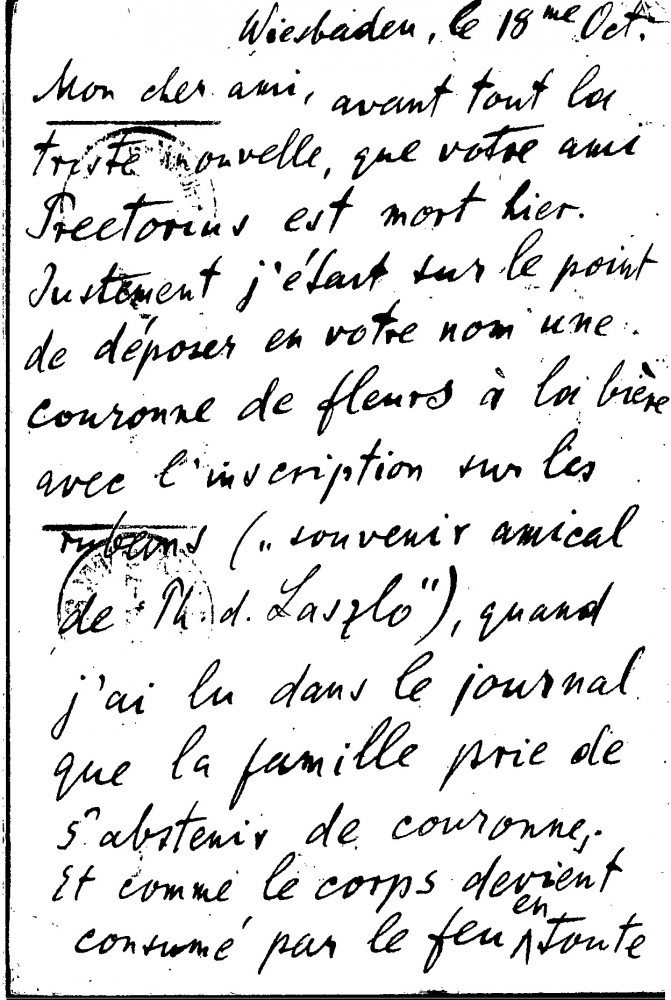 Wiesbaden, le 18me Oct.
Mon cher ami, avant tout la
triste nouvelle, que votre ami
Preetorius est mort hier.
Justement j'était sur le point
de déposer en votre nom une
couronne de fleurs à la bière
avec l'inscription sur les
rubans („souvenir amical
de Th. d. Laszlo"), quand
j'ai lu dans le journal
que la famille prie de
s'abstenir de couronne,.
Et comme le corps devient
consumé par le feu en toute